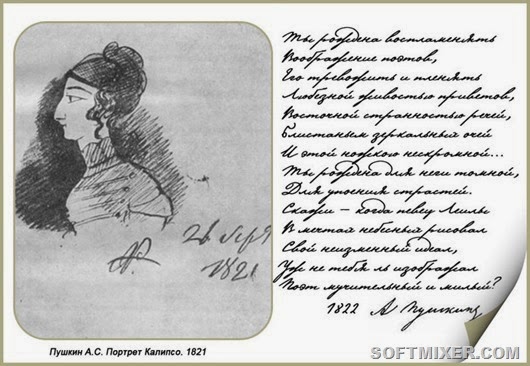 Ты рождена воспламенять
Воображение поэтов,
Его тревожить и пленять
Любезной живостью приветов,
Восточной странностью речей,
Блистаньем зеркальных очей
И этой ножкою нескромной...
Ты рождена для неги томной,
Для упоения страстей.
Скажи – когда певец Леилы
В мечтах небесных рисовал
Свой неизменный идеал,
Уж не тебя ль изображал
Поэт мучительный и милый?
1822 А Пушкин
26
1821
Пушкин А.С. Портрет Калипсо. 1821
SOFTMIXER.COM